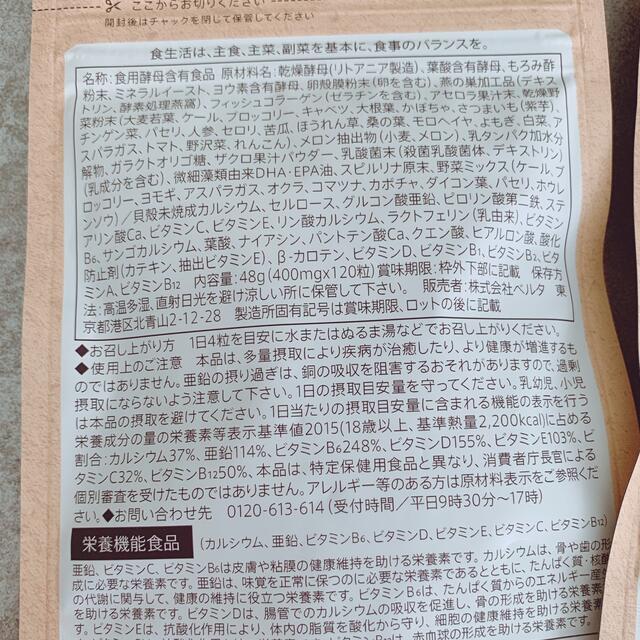 ここからお切りください
開封後はチャックを閉じて保管してください。
食生活は、主食、主菜、副菜を基本に、食事のバランスを。
名称:食用酵母含有食品 原材料名:乾燥酵母(リトアニア製造)、葉酸含有酵母、もろみ酢
粉末、ミネラルイースト、ヨウ素含有酵母、卵殻膜粉末(卵を含む)、燕の巣加工品(デキス
トリン、酵素処理燕窩)、フィッシュコラーゲン(ゼラチンを含む)、アセロラ果汁末、乾燥野
菜粉末(大麦若葉、ケール、ブロッコリー、キャベツ、大根葉、かぼちゃ、さつまいも(紫芋)、
チンゲン菜、パセリ、人参、セロリ、苦瓜、ほうれん草、桑の葉、モロヘイヤ、よもぎ、白菜、ア
スパラガス、トマト、野沢菜、れんこん)、メロン抽出物(小麦、メロン)、乳タンパク加水分
解物、ガラクトオリゴ糖、ザクロ果汁パウダー、乳酸菌末(殺菌乳酸菌体、デキストリン)
(乳成分を含む)、微細藻類由来DHA・EPA油、スピルリナ原末、野菜ミックス(ケール、ブ
ロッコリー、ヨモギ、アスパラガス、オクラ、コマツナ、カボチャ、ダイコン葉、パセリ、ホウレ
ンソウ)/貝殻未焼成カルシウム、セルロース、グルコン酸亜鉛、ピロリン酸第二鉄、ステ
アリン酸Ca、ビタミンC、ビタミンE、リン酸カルシウム、ラクトフェリン(乳由来)、ビタミン
B₆、サンゴカルシウム、葉酸、ナイアシン、パントテン酸Ca、クエン酸、ヒアルロン酸、酸化
防止剤(カテキン、抽出ビタミンE)、β-カロテン、ビタミンD、ビタミンB₁、ビタミンB₂、ビタ
ミンA、ビタミンB₁₂ 内容量:48g(400mg×120粒) 賞味期限:枠外下部に記載 保存方
法:高温多湿、直射日光を避け涼しい所に保管して下さい。 販売者:株式会社ベルタ 東
京都港区北青山2-12-28 製造所固有記号は賞味期限、ロットの後に記載
◆お召し上がり方 1日4粒を目安に水またはぬるま湯などでお召し上がりください。
◆使用上のご注意 本品は、多量摂取により疾病が治癒したり、より健康が増進するも
のではありません。亜鉛の摂り過ぎは、銅の吸収を阻害するおそれがありますので、過剰
摂取にならないよう注意して下さい。1日の摂取目安量を守ってください。乳幼児、小児
は本品の摂取を避けてください。1日当たりの摂取目安量に含まれる機能の表示を行う
栄養成分の量の栄養素等表示基準値2015(18歳以上、基準熱量2,200kcal)に占める
割合:カルシウム37%、亜鉛114%、ビタミンB₆248%、ビタミンD155%、ビタミンE103%、ビ
タミンC32%、ビタミンB₁₂50%、本品は、特定保健用食品と異なり、消費者庁長官による
個別審査を受けたものではありません。アレルギー等のある方は原材料表示をご参照くだ
さい。◆お問い合わせ先 0120-613-614 (受付時間/平日9時30分〜17時)
栄養機能食品 (カルシウム、亜鉛、ビタミンB₆、ビタミンD、ビタミンE、ビタミンC、ビタミンB₁₂)
亜鉛、ビタミンC、ビタミンB₆は皮膚や粘膜の健康維持を助ける栄養素です。カルシウムは、骨や歯の形
成に必要な栄養素です。亜鉛は、味覚を正常に保つのに必要な栄養素であるとともに、たんぱく質・核酸
の代謝に関与して、健康の維持に役立つ栄養素です。ビタミンB₆は、たんぱく質からのエネルギー産生
を助ける栄養素です。ビタミンDは、腸管でのカルシウムの吸収を促進し、骨の形成を助ける栄養素
す。ビタミンEは、抗酸化作用により、体内の脂質を酸化から守り、細胞の健康維持を助ける栄養